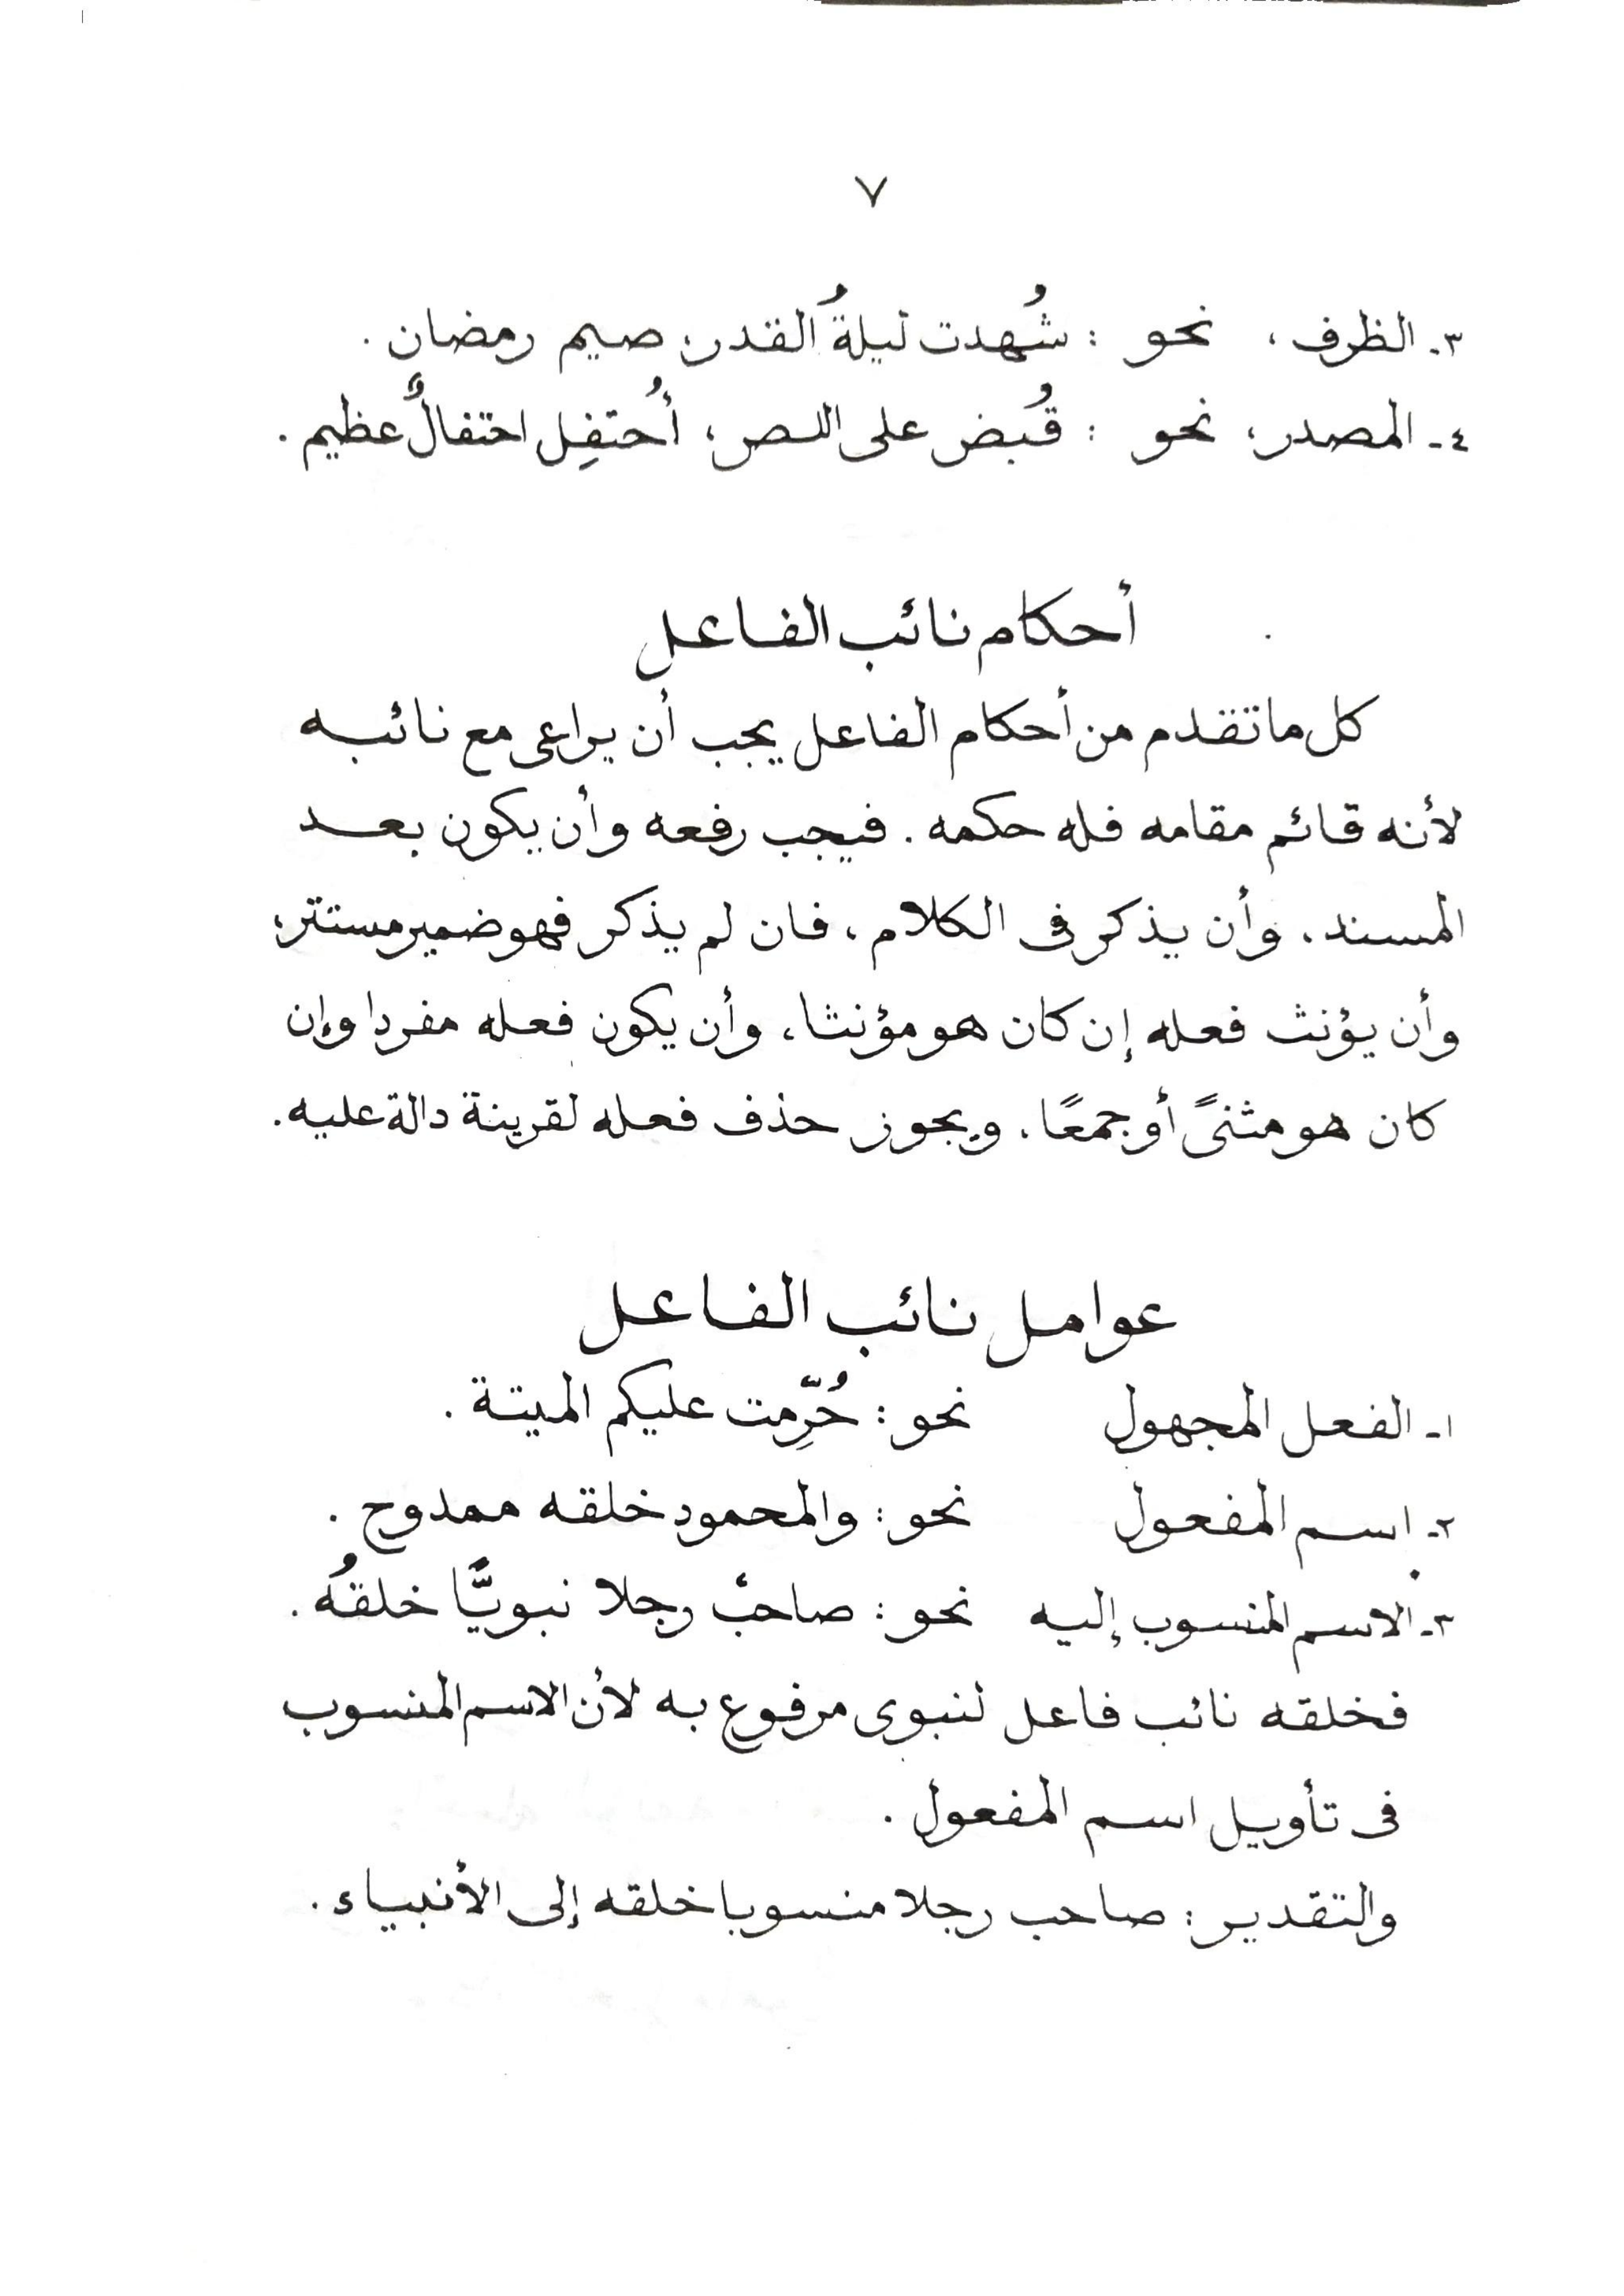 ٧
٣ـ الظرف، نحو : شُهدت ليلةُ القدر، صيم رمضان .
٤ـ المصدر، نحو : قُبض على اللص، أُحتفِل احتفالٌ عظيم .
أحكام نائب الفاعل
كل ما تقدم من أحكام الفاعل يجب أن يراعى مع نائبه
لأنه قائم مقامه فله حكمه . فيجب رفعه وأن يكون بعد
المسند، وأن يذكر فى الكلام، فان لم يذكر فهو ضمير مستتر،
وأن يؤنث فعله إن كان هو مؤنثا، وأن يكون فعله مفردا وإن
كان هو مثنىً أو جمعًا، ويجوز حذف فعله لقرينة دالة عليه .
عوامل نائب الفاعل
١ـ الفعل المجهول نحو : حُرِّمت عليكم الميتة .
٢ـ اسم المفعول نحو : والمحمود خلقه ممدوح .
٣ـ الاسم المنسوب إليه نحو : صاحبْ رجلا نبويًّا خلقهُ .
فخلقه نائب فاعل لنبوى مرفوع به لأن الاسم المنسوب
فى تأويل اسم المفعول .
والتقدير : صاحب رجلا منسوبا خلقه إلى الأنبياء .